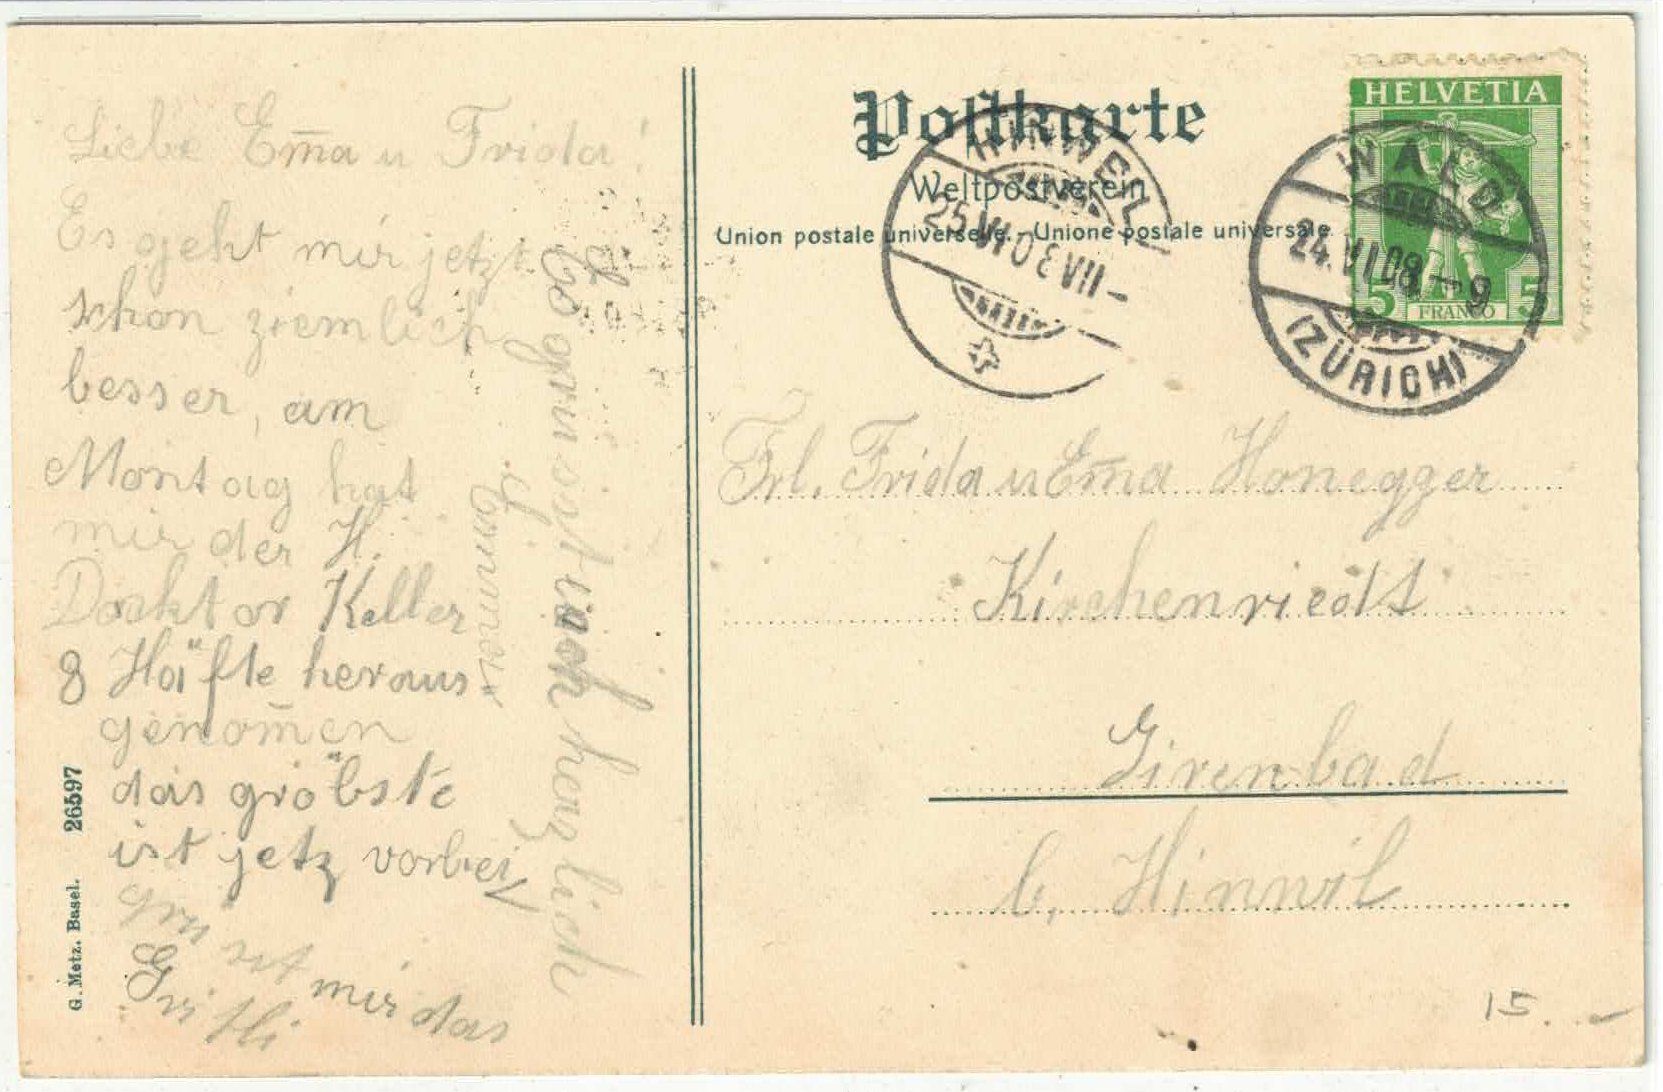 Liebe Em̅a u Frida!
Es geht mir jetzt
schon ziemlich
besser, am
Montag hat
mir der H.
Docktor Keller
8 Häfte heraus
genom̅en
das gröbste
ist jetz vorbei
grüsst mir das
Gritli
Es grüsst euch herzlich
G. Metz. Basel. 26597
Postkarte
Weltpostverein
Union postale universelle. - Unione postale universale
HINWEIL
25.VI.08 VII-
HELVETIA
5 FRANCO 5
WALD
24.VI.08-9
(ZÜRICH)
Frl. Frida u Em̅a Honegger
Kirchenriedt
Girenbad
b. Hinwil
15.-